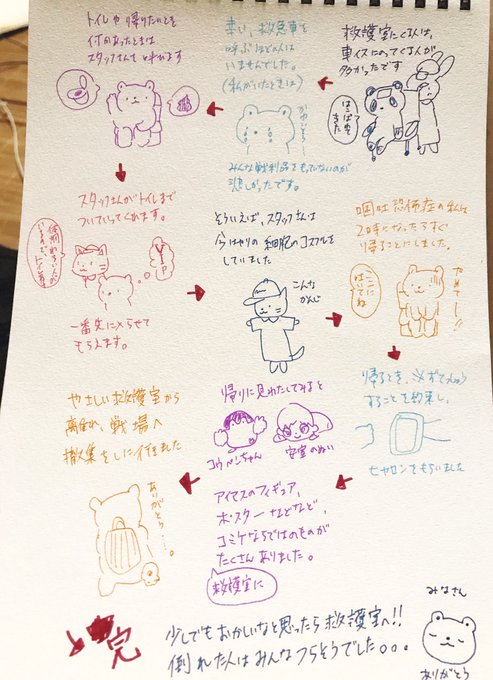 救護室にくる人は、
車イスにのってくる人が
多かったです
はこばれて
きた
幸い、救急車を
呼ぶほどの人は
いませんでした。
(私がいたときは)
かわいそう…
みんな戦利品をもっていないのが
悲しかったです。
トイレや帰りたいとき
があったときは
スタッフさんを呼びます
スタッフさんがトイレまで
ついていってくれます。
体調わるい人が
一番先に入らせて
もらえます。
そういえば、スタッフさんは
今はやりの細胞のコスプレを
していました
こんな
かんじ
嘔吐恐怖症の私は
2時になったらすぐ
帰ることにしました。
やめてー!!
ここに
はいてね
帰るとき、必ず
することを約束し、
ヒヤロンをもらいました
帰りに見わたしてみると
コウペンちゃん
安室のぬい
アイマスのフィギュア、
ポスターなどなど、
コミケならではのものが
たくさんありました。
救護室に
やさしい救護室から
離れ、戦場へ
撤集をしに行きました
ありがとう…。
完
少しでもおかしいなと思ったら救護室へ!!
倒れた人はみんなつらそうでした。。。
みなさん
ありがとう